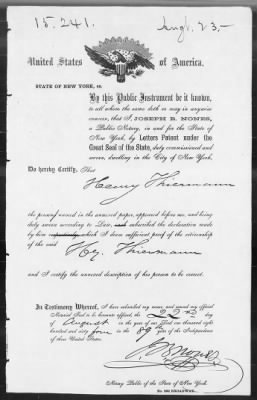 15.241.
Augt. 23,—
United States of America.
STATE OF NEW YORK, ss.
By this Public Instrument be it known,
to all whom the same doth or may in anywise
concern, that I, JOSEPH B. NONES,
a Public Notary, in and for the State of
New York, by Letters Patent under the
Great Seal of the State, duly commissioned and
sworn, dwelling in the City of New York,
Do hereby Certify, That
Henry Thiermann
the person named in the annexed paper, appeared before me, and being
duly sworn according to Law, subscribed the declaration made
by him which I deem sufficient proof of the citizenship
of the said Hy. Thiermann
and I certify the annexed description of his person to be correct.
In Testimony Whereof, I have subscribed my name, and caused my official
Notarial Seal to be hereunto affixed, the 22nd day of
August in the year of our Lord one thousand eight
hundred and sixty four in the 89th year of the Independence
of these United States.
J B Nones
Notary Public of the State of New York.